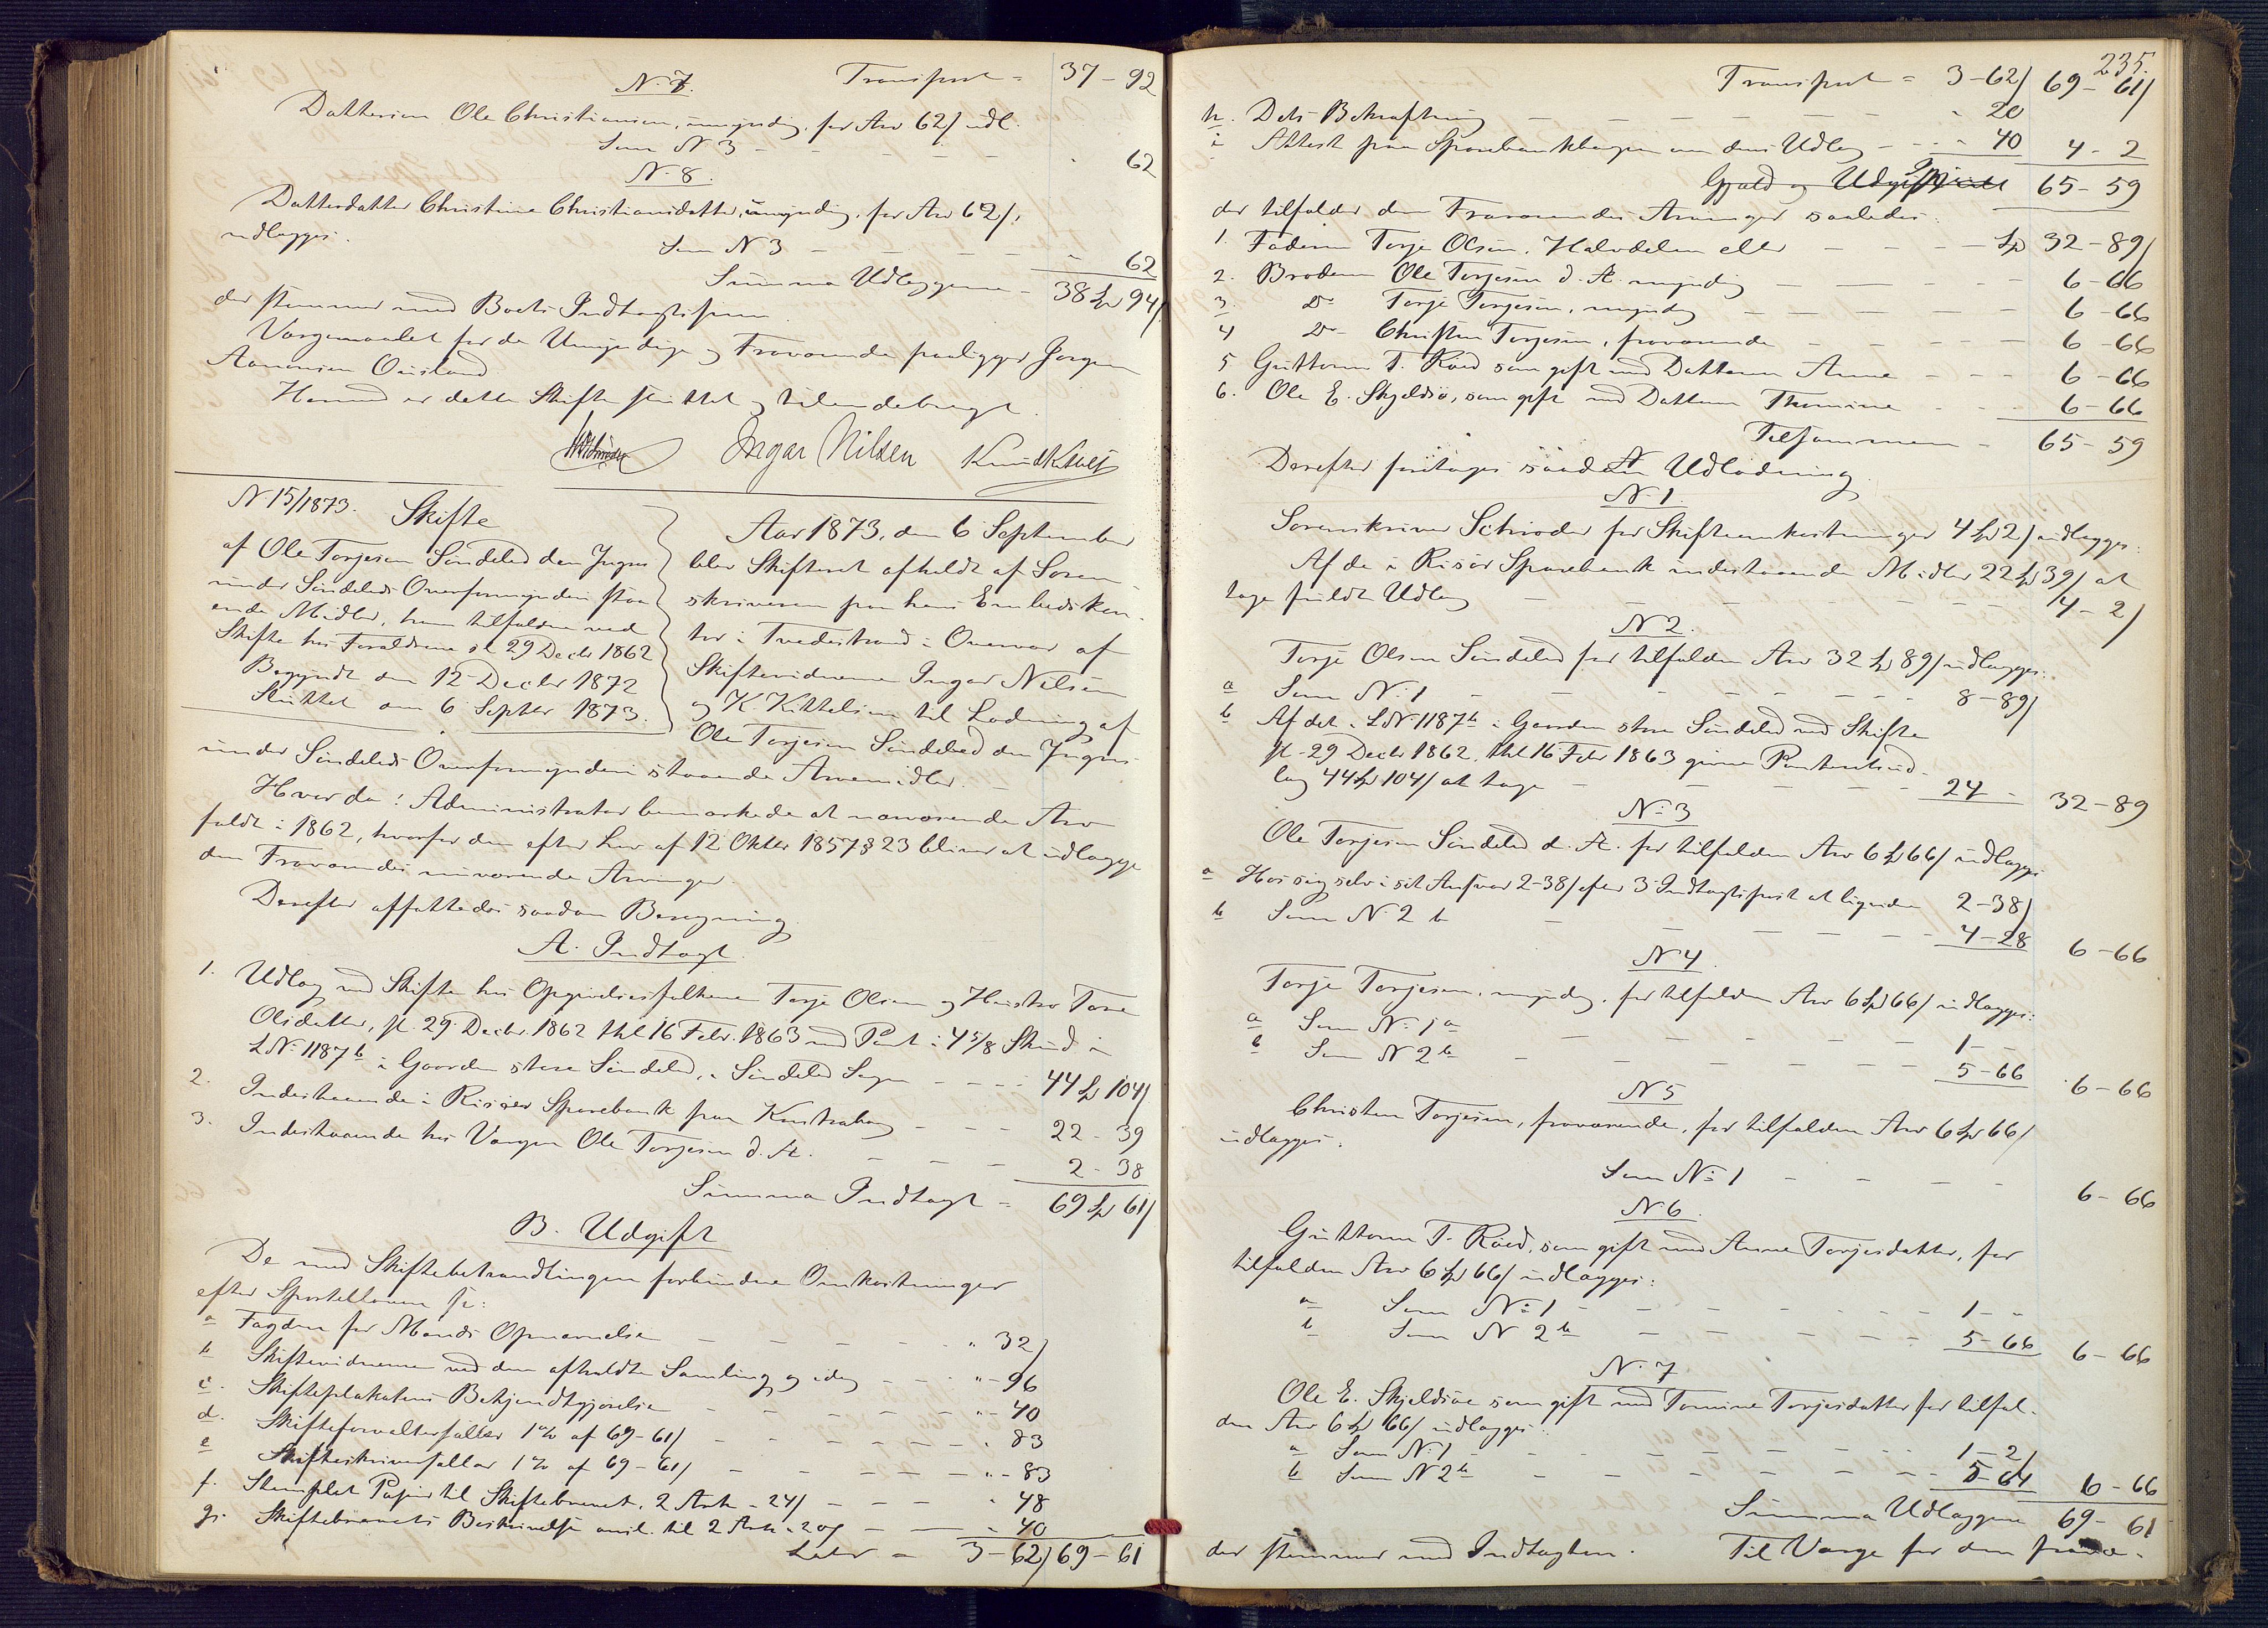 N. 7. Transport = 37-92
Dattersøn Ole Christiansen, umyndig, for Arv 62/ udl.
Som N 3 - - - - 62
N. 8.
Datterdatter Christine Christiansdatter, umyndig, for Arv 62/,
udlægges.
Som N 3 - - - - " 62
Summa Udlæggene - 38 Spd 94/
der stemmer med Boets Indtægtssum
Værgemaalet for de Umyndige og Fraværende paaligger Jørgen
Aanonsen Ousland
Hermed er dette Skifte sluttet og tilendebragt.
Schrøder Ingar Nilsen Knud Kittelsen
N 15/1873. Skifte
af Ole Torjesen Søndeled den Yngres
under Søndeleds Overformynderi staa-
ende Midler, ham tilfaldne ved
Skifte hos Forældrene sl. 29 Decbr 1862
Begyndt den 12 Decbr 1872
Sluttet den 6 Septbr 1873.
Aar 1873, den 6 September
blev Skifteret afholdt af Soren-
skriveren paa hans Embedskon-
tor i Tvedestrand i Overvær af
Skiftevidnerne Ingar Nilsen
og K. Kittelsen til Lodning af
Ole Torjesen Søndeled den Yngres
under Søndeleds Overformynderi staaende Arvemidler. -
Hvorda: Administrator bemærkede at nærværende Arv
faldt i 1862, hvorfor den efter Lov af 12 Oktbr 1857 § 23 bliver at udlægge
den Fraværendes nuværende Arvinger.
Derefter affattedes saadan Beregning
A. Indtægt.
1. Udlæg ved Skifte hos Opgivelsesfolkene Torje Olsen og Hustru Tone
Olsdatter, sl. 29 Decbr. 1862 thl 16 Febr. 1863 med Pant i 4 5/8 Skind i
LN: 1187 b i Gaarden store Søndeled, i Søndeled Sogn - - - - 44 Spd 104/
2. Indestaaende i Risøer Sparebank paa Kontrabog - - - 22-39
3. Indestaaende hos Værgen Ole Torjesen d. Æ. - - - 2-38
Summa Indtægt = 69 Spd 61/
B. Udgift
De med Skiftebehandlingen forbundne Omkostninger
efter Sportelloven §:
a Fogden for Mænds Opnævnelse - - - - " 32/
b Skiftevidnerne ved den afholdte Samling og idag - - - "-96
c. Skifteplakatens Bekjendtgjørelse - - - - "-40
d. Skifteforvaltersallær 1% af 69-61/ - - - - " 83
e Skifteskriversallær 1% af 69-61/ - - - - "-83
f. Stemplet Papir til Skiftebrevet, 2 Ark a 24/ - - - " 48
g. Skiftebrevets Beskrivelse ansl. til 2 Ark a 20/ - - - 40
Later = 3-62/ 69-61
235.
Transport = 3-62/ 69-61/
h. Dets Bekræftning - - - - " 20
i Attest paa Sparebankbogen om dens Udlæg - - - 40 4-2
Gjæld og Udgift 65-59
der tilfalder den Fraværendes Arvinger saaledes:
1. Faderen Torje Olsen, Halvdelen eller - - - - Spd 32-89/
2. Broderen Ole Torjesen d. Æ. myndig - - - - 6-66
3. Do Torje Torjesen, myndig - - - - 6-66
4 Do Christen Torjesen, fraværende - - - - 6-66
5 Guttorm T. Røed som gift med Datteren Anne - - - 6-66
6. Ole E. Skjeldsø, som gift med Datteren Thomine - - 6-66
Tilsammen - 65-59
Derefter foretages saadan Udlodning
N. 1.
Sorenskriver Schrøder for Skifteomkostninger 4 Spd 2/ udlægges:
Af de i Risør Sparebank indestaaende Midler 22 Spd 39/ at
tage fuldt Udlæg - - - - 4-2/
N 2.
Torje Olsen Søndeled for tilfalden Arv 32 Spd 89/ udlægges:
a Som N: 1 - - - - 8-89/
b Af det i LN: 1187 b i Gaarden store Søndeled ved Skifte
sl. 29 Decbr 1862, thl 16 Febr 1863 givne Panteretsud-
læg 44 Spd 104/ at tage - - - - 24 - 32-89
N: 3
Ole Torjesen Søndeled d. Æ. for tilfalden Arv 6 Spd 66/ udlægges
a Hos sig selv i sit Ansvar 2-38/ efter 3 Indtægtspost at ligne den 2-38/
b Som N. 2 b - - - - 4-28 6-66
N 4.
Torje Torjesen, myndig, for tilfalden Arv 6 Spd 66/ udlægges:
a Som N: 1 a - - - - 1-"
b Som N 2 b - - - - 5-66 6-66
N 5
Christen Torjesen, fraværende, for tilfalden Arv 6 Spd 66/
udlægges:
Som N: 1 - - - - 6-66
N 6.
Guttorm T. Røed, som gift med Anne Torjesdatter, for
tilfalden Arv 6 Spd 66/ udlægges:
a Som N: 1 - - - - 1-"
b Som N 2 b - - - - 5-66 6-66
N. 7
Ole E. Skjeldsøe som gift med Tomine Torjesdatter for tilfal-
den Arv 6 Spd 66/ udlægges:
a Som N: 1 - - - - 1-2/
b Som N 2 b - - - - 5-64 6-66
Summa Udlæggene 69-61
der stemmer med Indtægten. Til Værge for den fravæ-